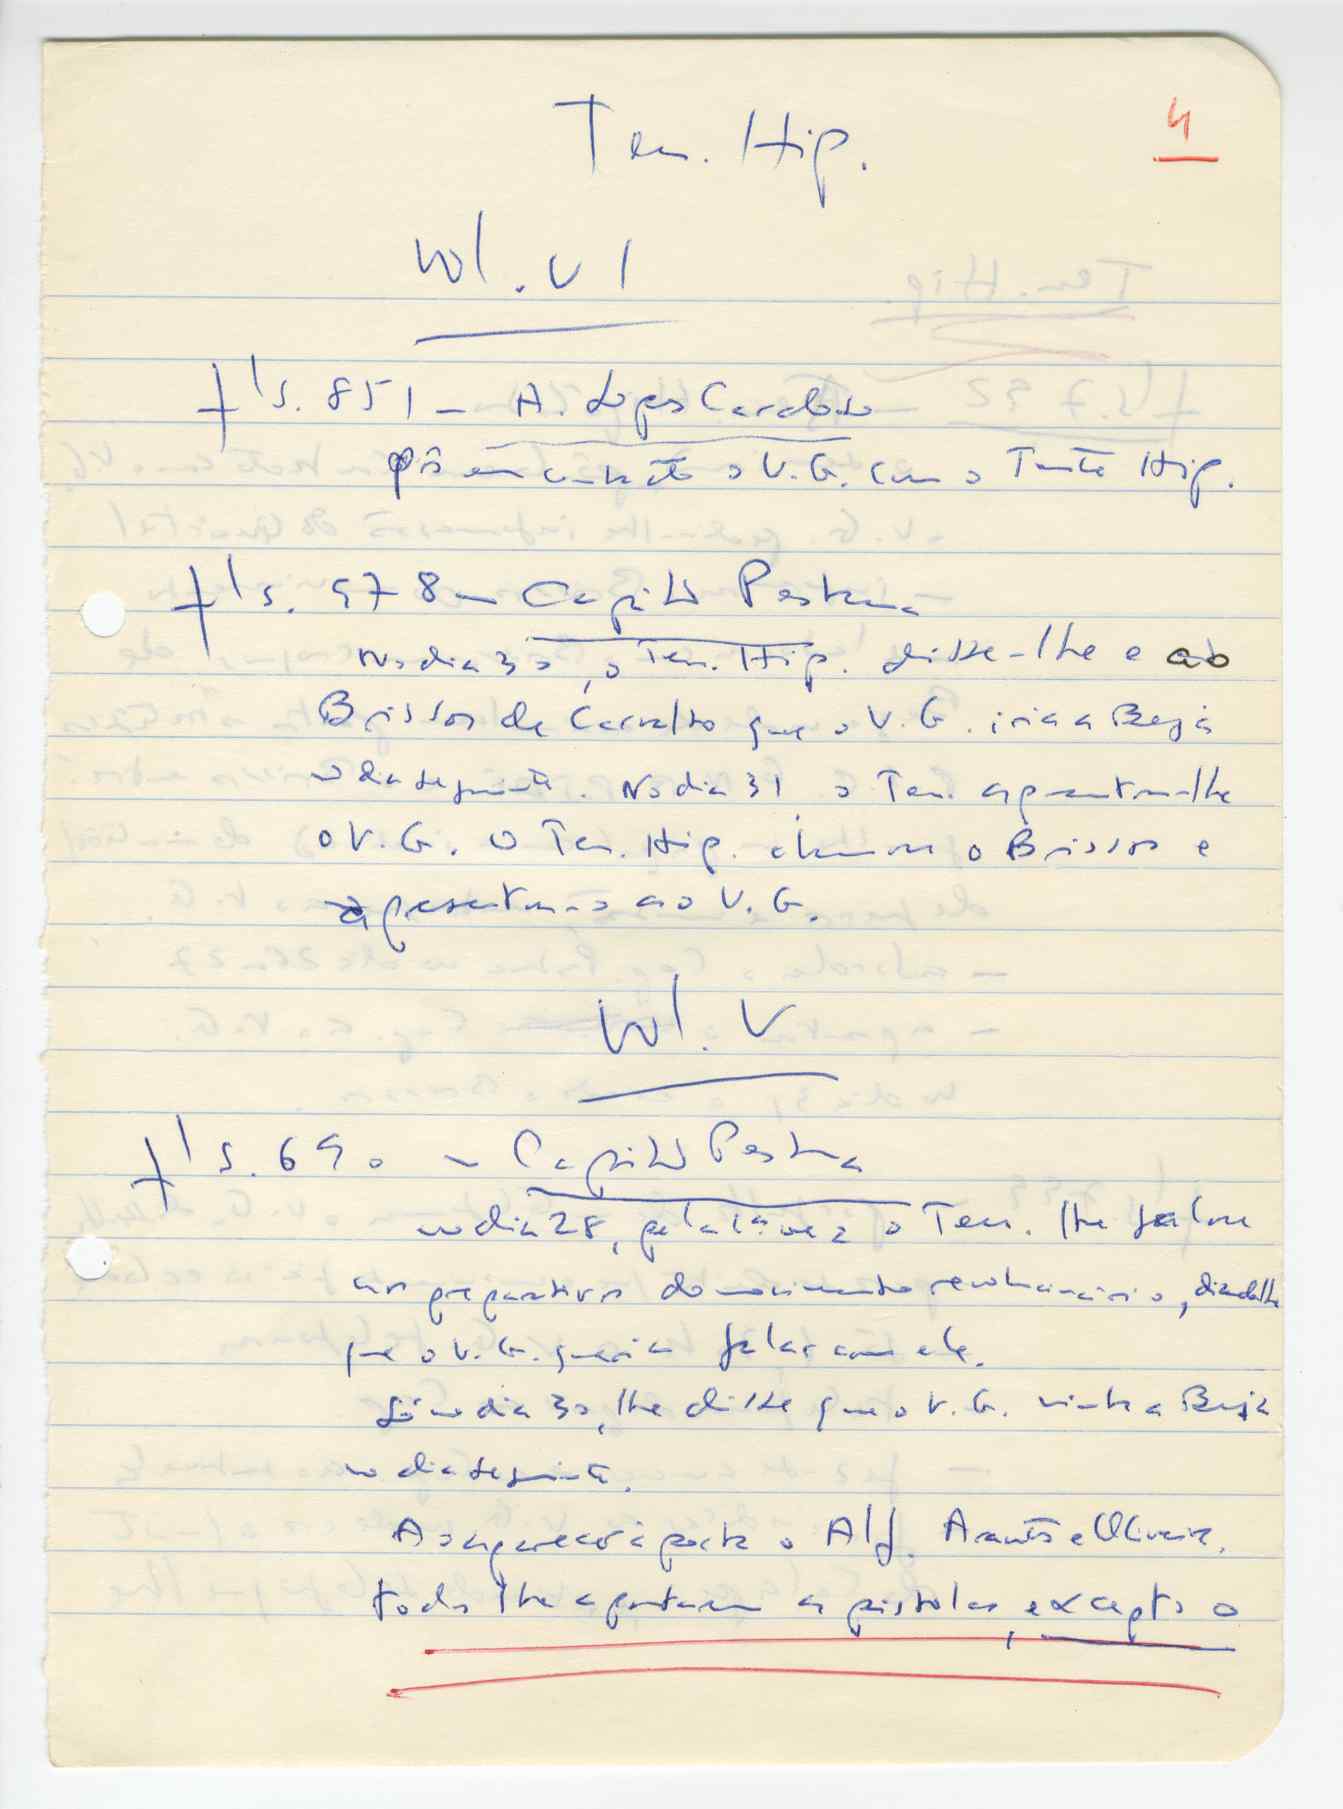 4
Ten. Hip.
Vol. VI
fls. 851 - A. Lopes Cardoso
Pôs em contacto o V.G. com o Tenente Hip.
fls. 978 - Capitão Pestana
No dia 30, o Ten. Hip. disse-lhe e ao
Brissos de Carvalho que o V.G. iria a Beja
no dia seguinte. No dia 31 o Ten. apresentou-lhe
o V.G. O Ten. Hip. chamou o Brissos e
apresentou-o ao V.G.
Vol. V
fls. 690 - Capitão Pestana
no dia 28, pela 1ª vez o Ten. lhe falou
nos preparativos do movimento revolucionário, dizendo-lhe
que o V.G. queria falar com ele.
Só no dia 30, lhe disse que o V.G. vinha a Beja
no dia seguinte.
Ao aparecer à porta o Alf. Arantes e Oliveira,
todos lhe apontaram as pistolas, excepto o